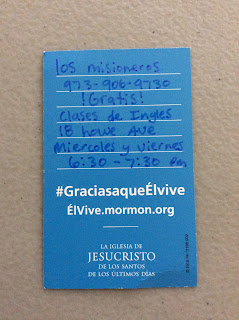 los misioneros
973-906-9730
¡Gratis!
Clases de Ingles
18 howe Ave
Miercoles y viernes
6:30 - 7:30 pm
#GraciasaqueÉlvive
ÉlVive.mormon.org
LA IGLESIA DE
JESUCRISTO
DE LOS SANTOS
DE LOS ÚLTIMOS DÍAS